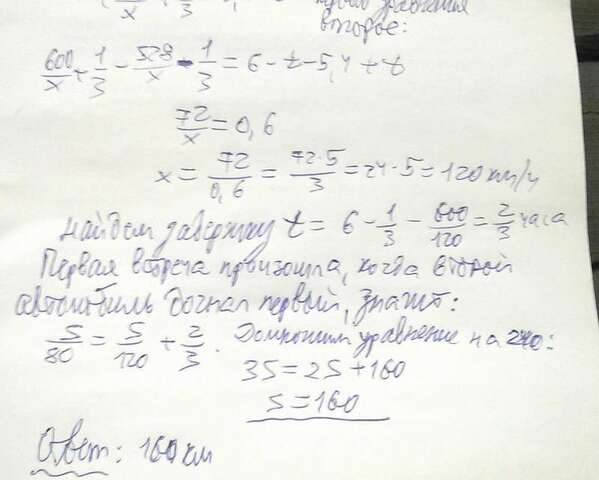 первого уравнения
второе:
600/x + 1/3 - 528/x - 1/3 = 6 - t - 5,4 + t
72/x = 0,6
x = 72/0,6 = 72·5/3 = 24·5 = 120 км/ч
Найдем задержку t = 6 - 1/3 - 600/120 = 2/3 часа
Первая встреча произошла, когда второй
автомобиль догнал первый, значит:
S/80 = S/120 + 2/3. Домножим уравнение на 240:
3S = 2S + 160
S = 160
Ответ: 160 км